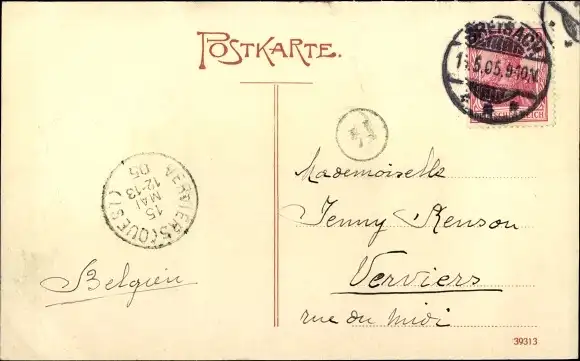 POSTKARTE.
BREISACH
5.05.9-10V.
DEUTSCHES REICH
VERVIERS (OUEST)
15
MAI
12-13
05
Mademoiselle
Jenny Renson
Verviers
rue du Midi
Belgien
39313